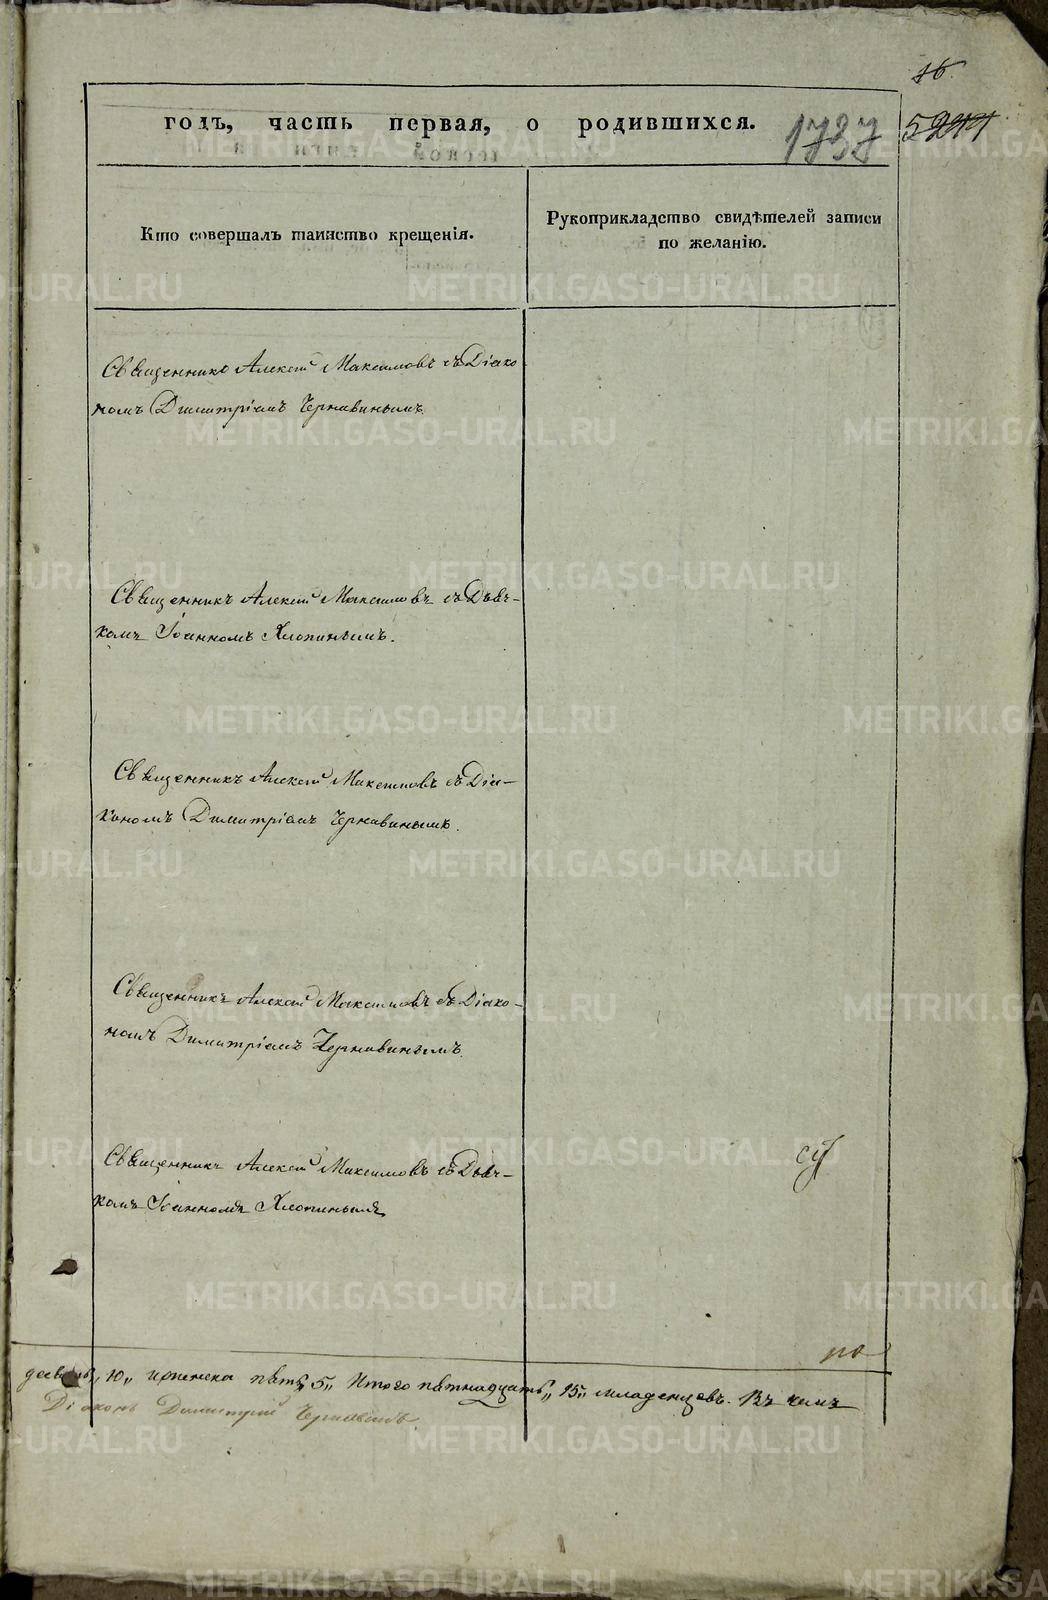 16.
годъ, часть первая, о родившихся. 1737 5244
Кто совершалъ таинство крещенія.
Рукоприкладство свидѣтелей записи
по желанію.
Священникъ Алексій Максимовъ съ Діако-
номъ Димитріемъ Чернавинымъ.
Священникъ Алексій Максимовъ съ Дьяч-
комъ Іоанномъ Хлопинымъ.
Священникъ Алексій Максимовъ съ Діа-
кономъ Димитріемъ Чернавинымъ.
Священникъ Алексій Максимовъ съ Діако-
номъ Димитріемъ Чернавинымъ.
Священникъ Алексій Максимовъ съ Дьяч-
комъ Іоанномъ Хлопинымъ
по
10,, женска пять 5,, Итого пятнадцать,, 15,, младенцовъ. Въ чемъ
Діаконъ Димитрій Чернавинъ
METRIKI.GASO-URAL.RU